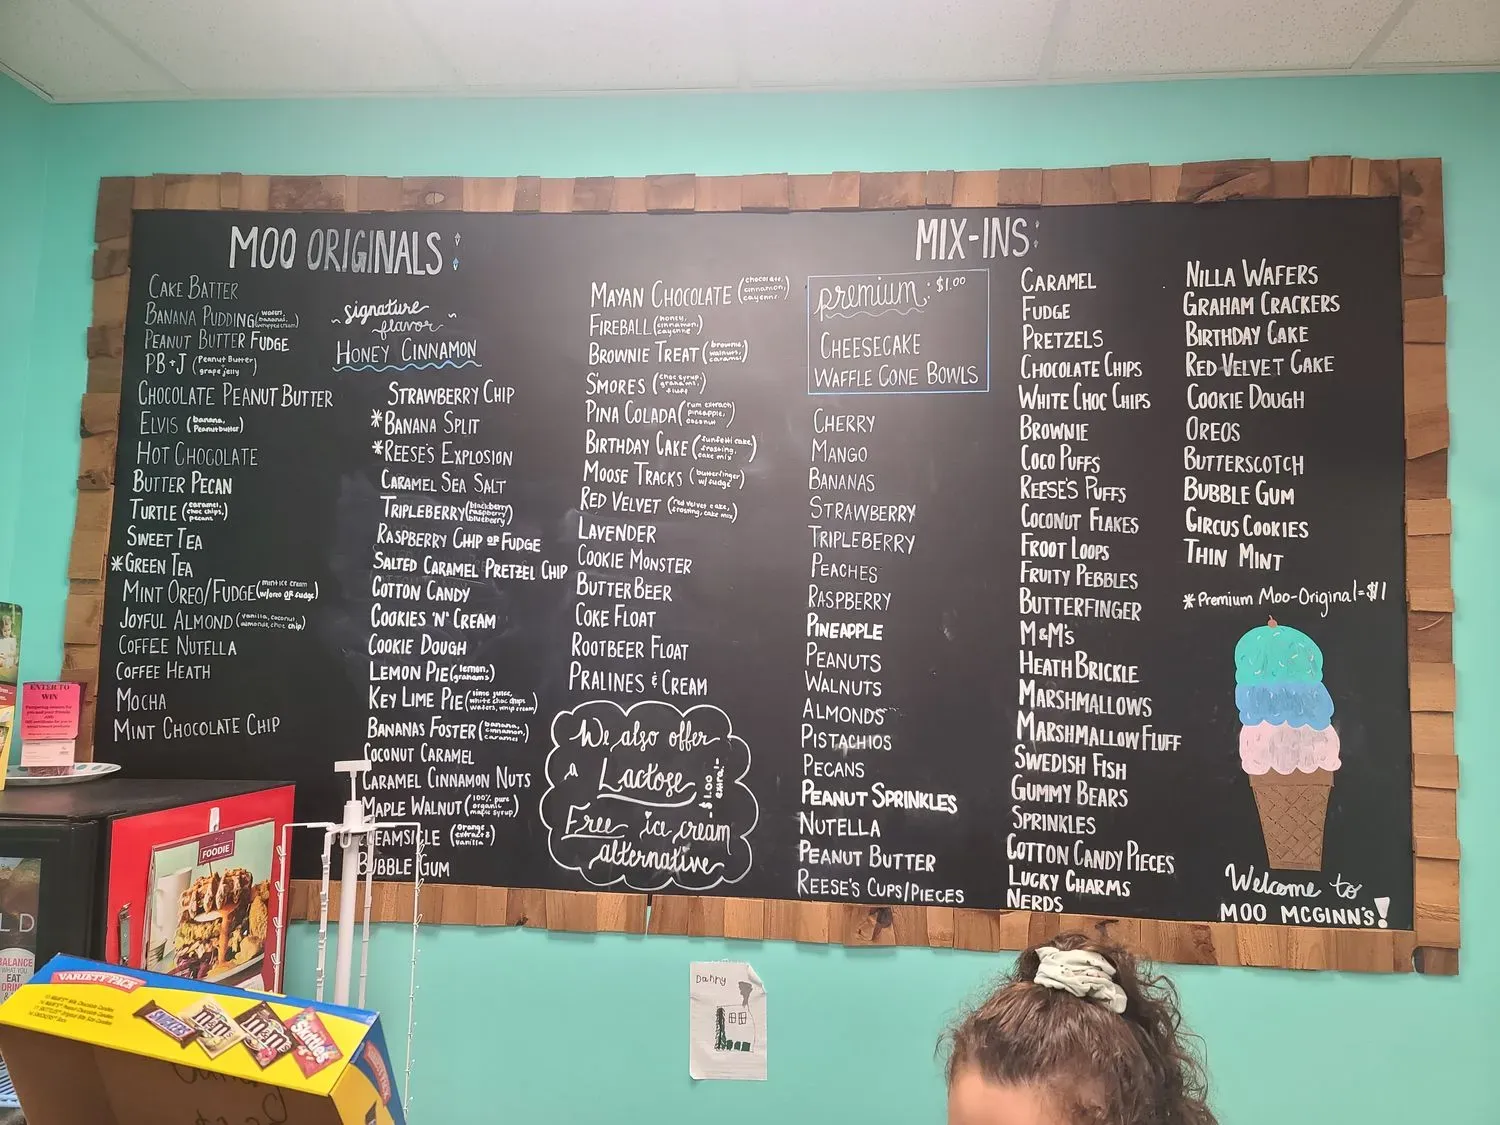 MOO ORIGINALS:
CAKE BATTER
BANANA PUDDING (wafers, bananas, whipped cream)
PEANUT BUTTER FUDGE
PB+J (Peanut Butter grape jelly)
CHOCOLATE PEANUT BUTTER
ELVIS (banana, Peanut butter)
HOT CHOCOLATE
BUTTER PECAN
TURTLE (caramel, choc chips, pecans)
SWEET TEA
*GREEN TEA
MINT OREO/FUDGE (mint ice cream w/oreo OR fudge)
JOYFUL ALMOND (vanilla, coconut, almonds, choc chip)
COFFEE NUTELLA
COFFEE HEATH
MOCHA
MINT CHOCOLATE CHIP
signature
flavor
HONEY CINNAMON
STRAWBERRY CHIP
*BANANA SPLIT
*REESE'S EXPLOSION
CARAMEL SEA SALT
TRIPLEBERRY (blackberry raspberry blueberry)
RASPBERRY CHIP OR FUDGE
SALTED CARAMEL PRETZEL CHIP
COTTON CANDY
COOKIES 'N' CREAM
COOKIE DOUGH
LEMON PIE (lemon, grahams)
KEY LIME PIE (lime juice, white choc chips wafers, whip cream)
BANANAS FOSTER (banana, cinnamon, caramel)
COCONUT CARAMEL
CARAMEL CINNAMON NUTS
MAPLE WALNUT (100% pure organic maple syrup)
CREAMSICLE (Orange extract & vanilla)
BUBBLE GUM
MAYAN CHOCOLATE (chocolate, cinnamon, cayenne)
FIREBALL (honey, cinnamon, cayenne)
BROWNIE TREAT (brownie, walnuts, caramel)
S'MORES (choc syrup, grahams, fluff)
PINA COLADA (rum extract, pineapple, coconut)
BIRTHDAY CAKE (funfetti cake, frosting, cake mix)
MOOSE TRACKS (butterfinger w/ fudge)
RED VELVET (red velvet cake, frosting, cake mix)
LAVENDER
COOKIE MONSTER
BUTTERBEER
COKE FLOAT
ROOTBEER FLOAT
PRALINES & CREAM
We also offer
a Lactose
Free ice cream
alternative
$1.00 extra!
MIX-INS:
premium: $1.00
CHEESECAKE
WAFFLE CONE BOWLS
CHERRY
MANGO
BANANAS
STRAWBERRY
TRIPLEBERRY
PEACHES
RASPBERRY
PINEAPPLE
PEANUTS
WALNUTS
ALMONDS
PISTACHIOS
PECANS
PEANUT SPRINKLES
NUTELLA
PEANUT BUTTER
REESE'S CUPS/PIECES
CARAMEL
FUDGE
PRETZELS
CHOCOLATE CHIPS
WHITE CHOC CHIPS
BROWNIE
COCO PUFFS
REESE'S PUFFS
COCONUT FLAKES
FROOT LOOPS
FRUITY PEBBLES
BUTTERFINGER
M&M'S
HEATH BRICKLE
MARSHMALLOWS
MARSHMALLOW FLUFF
SWEDISH FISH
GUMMY BEARS
SPRINKLES
COTTON CANDY PIECES
LUCKY CHARMS
NERDS
NILLA WAFERS
GRAHAM CRACKERS
BIRTHDAY CAKE
RED VELVET CAKE
COOKIE DOUGH
OREOS
BUTTERSCOTCH
BUBBLE GUM
CIRCUS COOKIES
THIN MINT
*Premium Moo-Original=$1
Welcome to
MOO MCGINN'S!
ENTER TO
WIN
FOODIE
LD
BALANCE
WHAT YOU
EAT
DRINK
VARIETY PACK
SNICKERS
m&m's
m&m's
Skittles
Danny